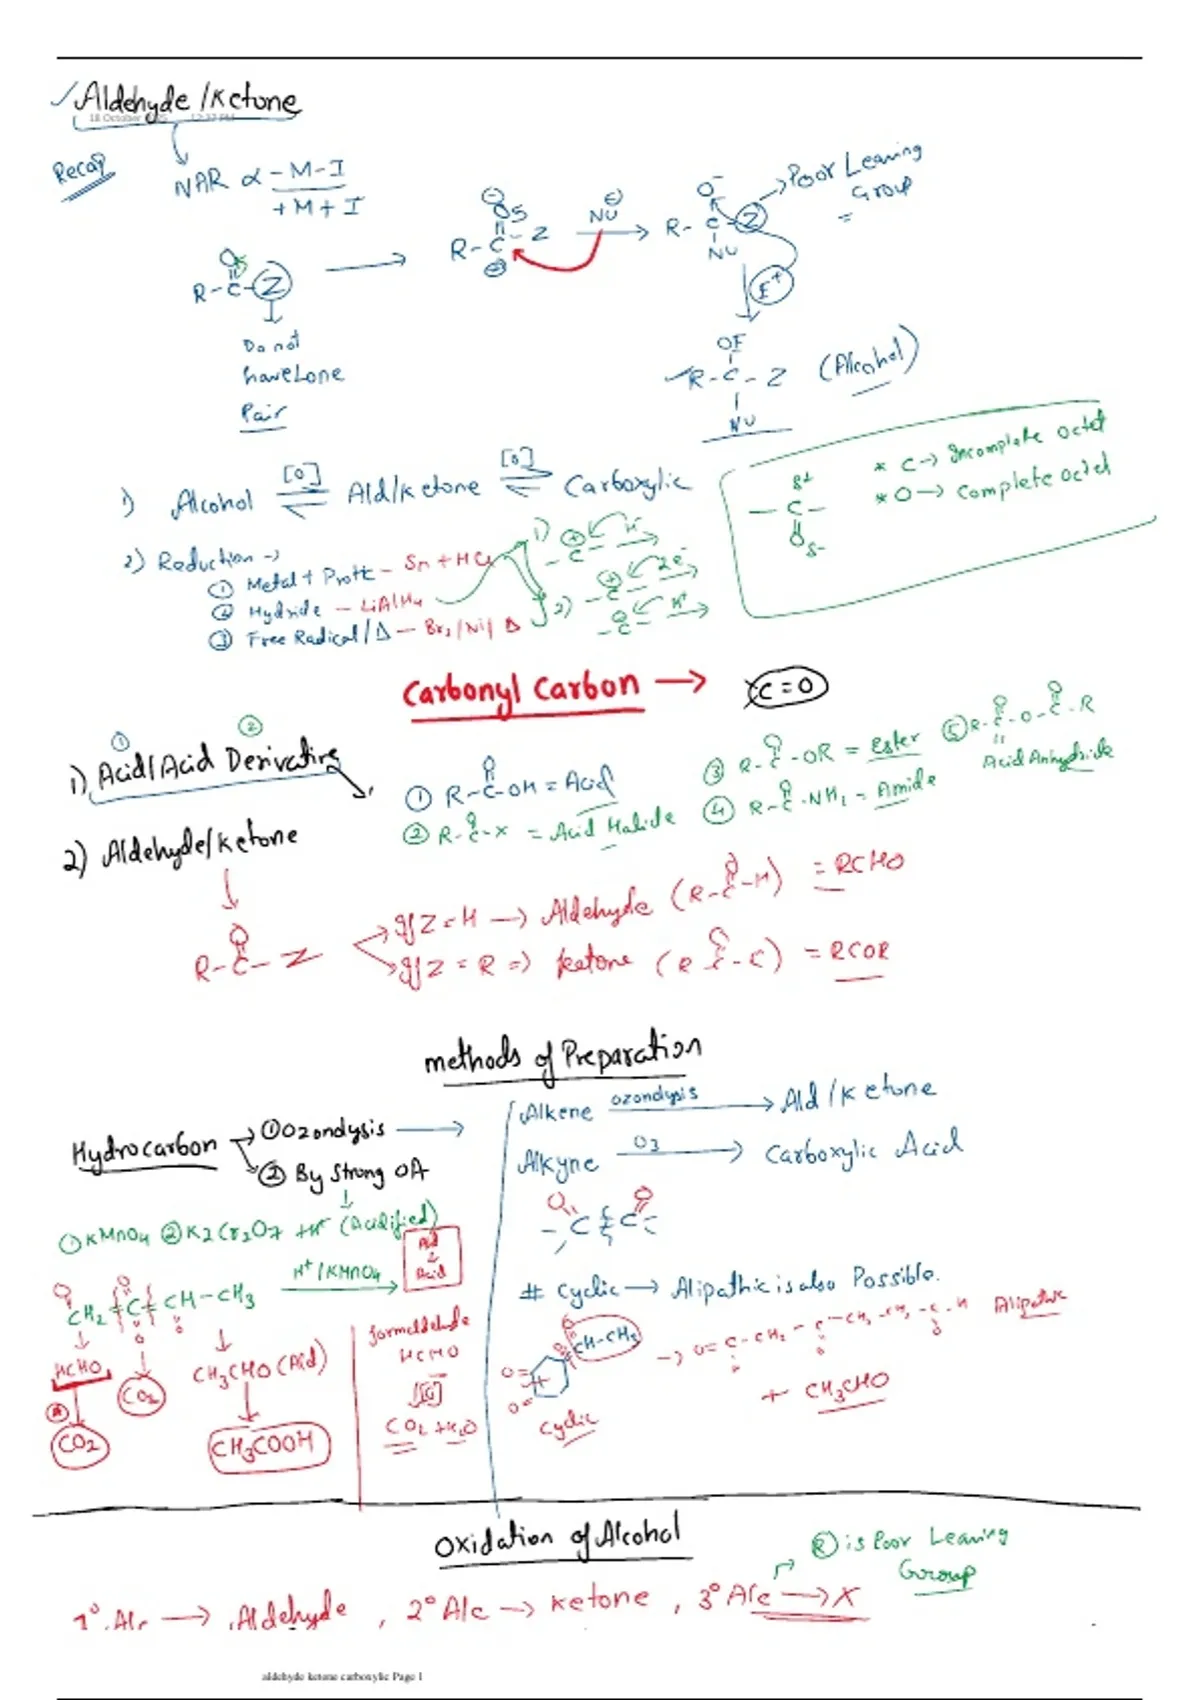 ✓Aldehyde/Ketone
18 October
Recap
NAR α -M-I
+M+I
R-C-Z
O
Do not
have Lone
Pair
R-C-Z
Nu
→ Poor Leaving
Group
R-C-Z
NU
E+
OE
R-C-Z (Alcohol)
NU
1) Alcohol [O] ⇌ Ald/Ketone [O] ⇌ Carboxylic
* C → Incomplete Octet
* O → Complete Octet
δ+
-C-
O δ-
2) Reduction →
① Metal + Protic - Sn + HCl
② Hydride - LiAlH4
③ Free Radical/Δ - Br2/Ni/Δ
1) -C- H-
2) -C- 2e-
-C- H+
Carbonyl Carbon → C=O
① ②
1) Acid/Acid Derivative
① R-C-OH = Acid
② R-C-X = Acid Halide
③ R-C-OR = Ester
④ R-C-NH2 = Amide
⑤ R-C-O-C-R
Acid Anhydride
2) Aldehyde/Ketone
R-C-Z
If Z = H → Aldehyde (R-C-H) = RCHO
If Z = R ⇒ Ketone (R C-C) = RCOR
methods of Preparation
Hydrocarbon → ① Ozonolysis →
② By Strong OA
① KMnO4 ② K2Cr2O7 + H+ (Acidified)
Alkene ozonolysis → Ald/Ketone
Alkyne O3 → Carboxylic Acid
CH2 C CH-CH3 H+/KMnO4 →
Ald
↓
Acid
HCHO
CO2
CH3CHO (Ald)
CO2
CH3COOH
formaldehyde
HCHO
[O]
CO2 + H2O
# Cyclic → Alipathic is also Possible.
CH-CH3
Cyclic
→ O=C-CH2-C-CH2-CH2-C-H Alipathic
+ CH3CHO
Oxidation of Alcohol
1° Alc → Aldehyde , 2° Alc → Ketone , 3° Alc → X
Ⓡ is Poor Leaving
Group
aldehyde ketone carboxylic Page 1